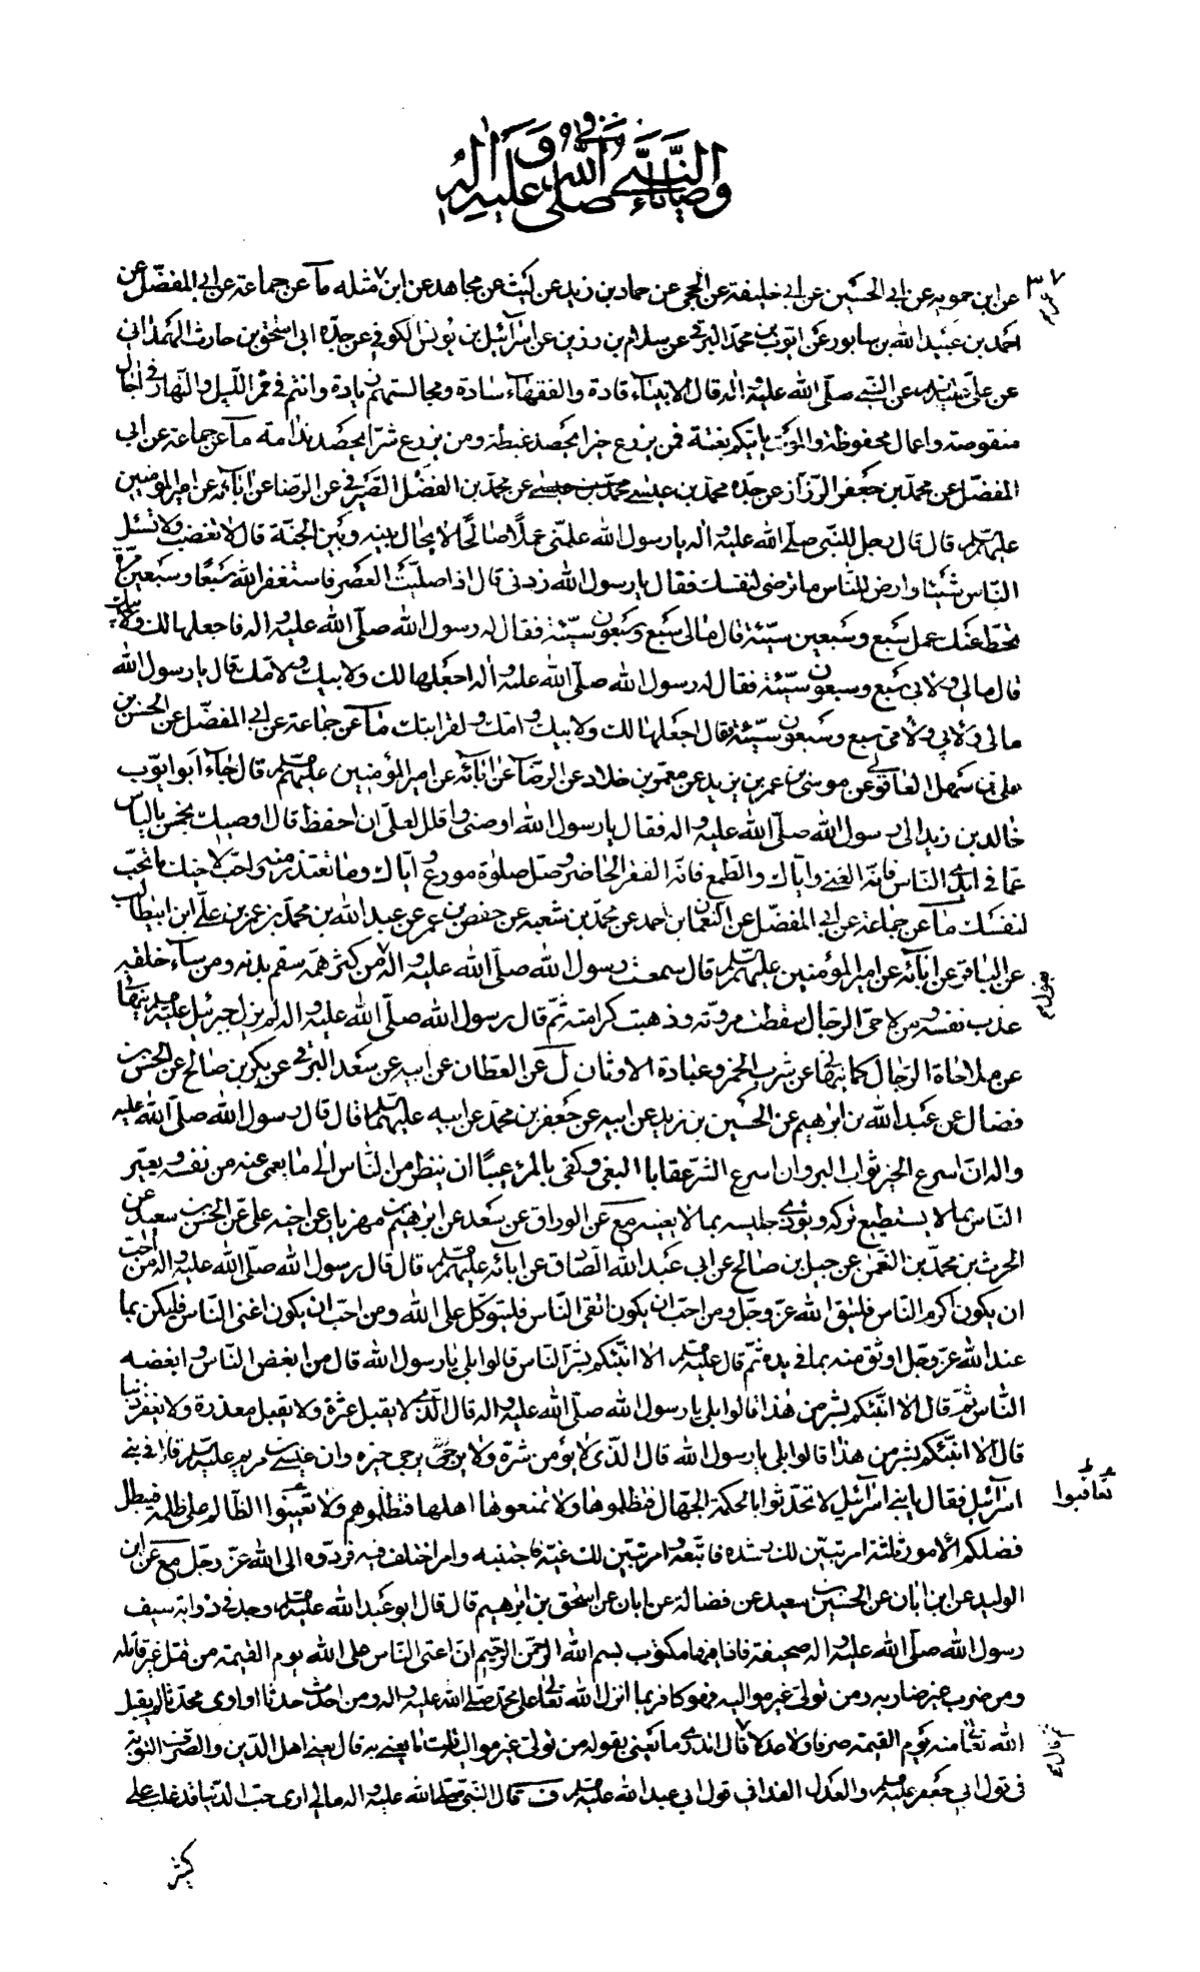 وصايا النبي صلى الله عليه واله
٣٧
عن ابن حمويه عن ابي الحسين عن ابي خليفة عن الحجبي عن حماد بن زيد عن ليث عن مجاهد عن ابن مثله ما عن جماعة عن ابي المفضل عن
احمد بن عبيد الله بن سابور عن ايوب بن محمد البرقي عن سلام بن رزين عن اسرائيل بن يونس الكوفي عن جده ابي اسحق بن حارث الهمداني
عن علي عن النبي صلى الله عليه واله قال الانبياء قادة والفقهاء سادة ومجالستهم زيادة وانتم في ممر الليل والنهار في اجال
منقوصة واعمال محفوظة والموت ياتيكم بغتة فمن يزرع خيرا يحصد غبطة ومن يزرع شرا يحصد ندامة ما عن جماعة عن ابي
المفضل عن محمد بن جعفر الرزاز عن جده محمد بن عيسى عن محمد بن الفضل الصيرفي عن الرضا عن ابائه عن امير المؤمنين
عليهم قال قال رجل للنبي صلى الله عليه واله يا رسول الله علمني عملا صالحا لا يحال بينه وبين الجنة قال لا تغضب ولا تسئل
الناس شيئا وارض للناس ما ترضى لنفسك فقال يا رسول الله زدني قال اذا صليت العصر فاستغفر الله سبعا وسبعين مرة
تحط عنك عمل سبع وسبعين سيئة قال مالي سبع وسبعون سيئة فقال له رسول الله صلى الله عليه واله فاجعلها لك ولابيك
قال مالي ولابي سبع وسبعون سيئة فقال له رسول الله صلى الله عليه واله اجعلها لك ولابيك ولامك قال يا رسول الله
مالي ولابي ولامي سبع وسبعون سيئة فقال اجعلها لك ولابيك وامك ولقرابتك ما عن جماعة عن ابي المفضل عن الحسن بن
علي بن سهل العاقولي عن موسى بن عمر بن يزيد عن معمر بن خلاد عن الرضا عن ابائه عن امير المؤمنين عليهم قال جاء ابو ايوب
خالد بن زيد الى رسول الله صلى الله عليه واله فقال يا رسول الله اوصني واقلل لعلي ان احفظ قال اوصيك بخمس بالياس
عما في ايدي الناس فانه الغنى واياك والطمع فانه الفقر الحاضر وصل صلوة مودع واياك وما تعتذر منه واحب لاخيك ما تحب
لنفسك ما عن جماعة عن ابي المفضل عن النعمان بن احمد عن محمد بن شعبه عن حفص بن عمر عن عبد الله بن محمد بن عمر بن علي ابن ابيطالب
عن الباقر عن ابائه عن امير المؤمنين عليهم قال سمعت رسول الله صلى الله عليه واله من كثر همه سقم بدنه ومن ساء خلقه
عذب نفسه ومن لاحى الرجال سقطت مروته وذهبت كرامته ثم قال رسول الله صلى الله عليه واله لم يزل جبرئيل عليه ينهاني
عن ملاحاة الرجال كما ينهاني عن شرب الخمر وعبادة الاوثان ل عن القطان عن ابيه عن سعد البرقي عن بكر بن صالح عن الحسن بن
فضال عن عبد الله بن ابرهيم عن الحسين بن زيد عن ابيه عن جعفر بن محمد عن ابيه عليهم قال قال رسول الله صلى الله عليه
واله ان اسرع الخير ثوابا البر وان اسرع الشر عقابا البغي وكفى بالمرء عيبا ان ينظر من الناس الى ما يعمى عنه من نفسه ويعير
الناس بما لا يستطيع تركه ويؤذي جليسه بما لا يعنيه مع عن الوراق عن سعد عن ابرهيم بن مهزيار عن اخيه علي عن الحسن بن سعيد عن
الحرث بن محمد بن النعمن عن جميل بن صالح عن ابي عبد الله الصادق عن ابائه عليهم قال قال رسول الله صلى الله عليه واله من احب
ان يكون اكرم الناس فليتق الله عز وجل ومن احب ان يكون اتقى الناس فليتوكل على الله ومن احب ان يكون اغنى الناس فليكن بما
عند الله عز وجل اوثق منه بما في يده ثم قال عليه الا انبئكم بشر الناس قالوا بلى يا رسول الله قال من ابغض الناس وابغضه
الناس ثم قال الا انبئكم بشر من هذا قالوا بلى يا رسول الله صلى الله عليه واله قال الذي لا يقبل عثرة ولا يقبل معذرة ولا يغفر ذنبا
قال الا انبئكم بشر من هذا قالوا بلى يا رسول الله قال الذي لا يؤمن شره ولا يرجى خيره وان عيسى بن مريم عليه قام في بني
اسرائيل فقال يا بني اسرائيل لا تحدثوا بالحكمة الجهال فتظلموها ولا تمنعوها اهلها فتظلموهم ولا تعينوا الظالم على ظلمه فيبطل
تعاقبوا
فضلكم الامور ثلثة امر تبين لك رشده فاتبعه وامر تبين لك غيه فاجتنبه وامر اختلف فيه فرده الى الله عز وجل مع عن ابن
الوليد عن ابن ابان عن الحسين بن سعيد عن فضالة عن ابان عن اسحق بن ابرهيم قال قال ابو عبد الله عليه وجد في ذوابة سيف
رسول الله صلى الله عليه واله صحيفة فاذا فيها مكتوب بسم الله الرحمن الرحيم ان اعتى الناس على الله يوم القيمة من قتل غير قاتله
ومن ضرب غير ضاربه ومن تولى غير مواليه فهو كافر بما انزل الله تعالى على محمد صلى الله عليه واله ومن احدث حدثا او اوى محدثا لم يقبل
الله تعالى منه يوم القيمة صرفا ولا عدلا قال اتدري ما يعني بقوله من تولى غير مواليه قلت ما يعني به قال يعني اهل الدين والصرف التوبة
في قول ابي جعفر عليه والعدل الفداء في قول ابي عبد الله عليه ف قال النبي صلى الله عليه واله مالي ارى حب الدنيا قد غلب على
كثير